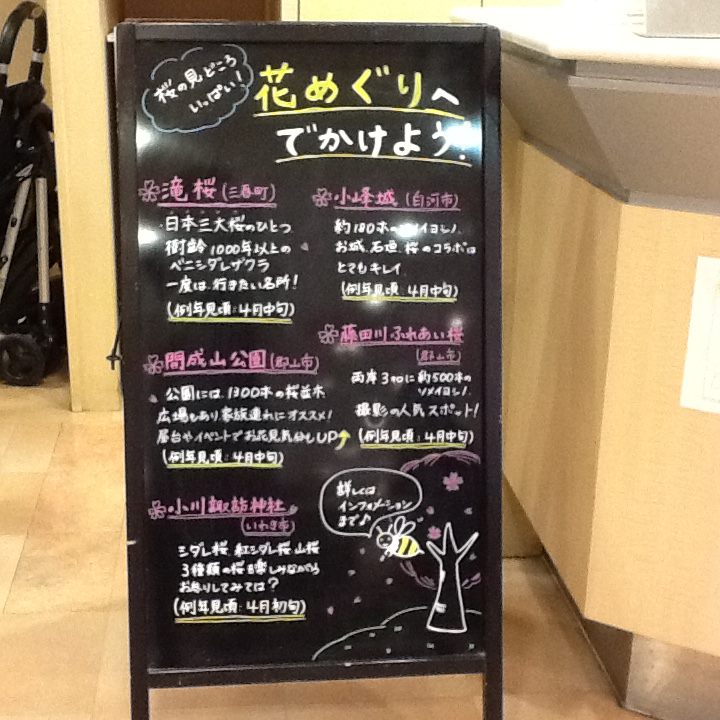 桜の見どころ
いっぱい！
花めぐりへ
でかけよう！
滝桜（三春町）
日本三大桜のひとつ
樹齢1000年以上の
ベニシダレザクラ
一度は行きたい名所！
（例年見頃：4月中旬）
小峰城（白河市）
約180本のソメイヨシノ
お城、石垣、桜のコラボは
とてもキレイ
（例年見頃：4月中旬）
開成山公園（郡山市）
公園には1300本の桜並木
広場もあり家族連れにオススメ！
屋台やイベントでお花見気分もUP↑
（例年見頃：4月中旬）
藤田川ふれあい桜
（郡山市）
両岸3kmに約500本の
ソメイヨシノ
撮影の人気スポット！
（例年見頃：4月中旬）
小川諏訪神社
（いわき市）
シダレ桜、紅シダレ桜、山桜
3種類の桜を楽しみながら
お参りしてみては？
（例年見頃：4月初旬）
詳しくは
インフォメーション
まで♪